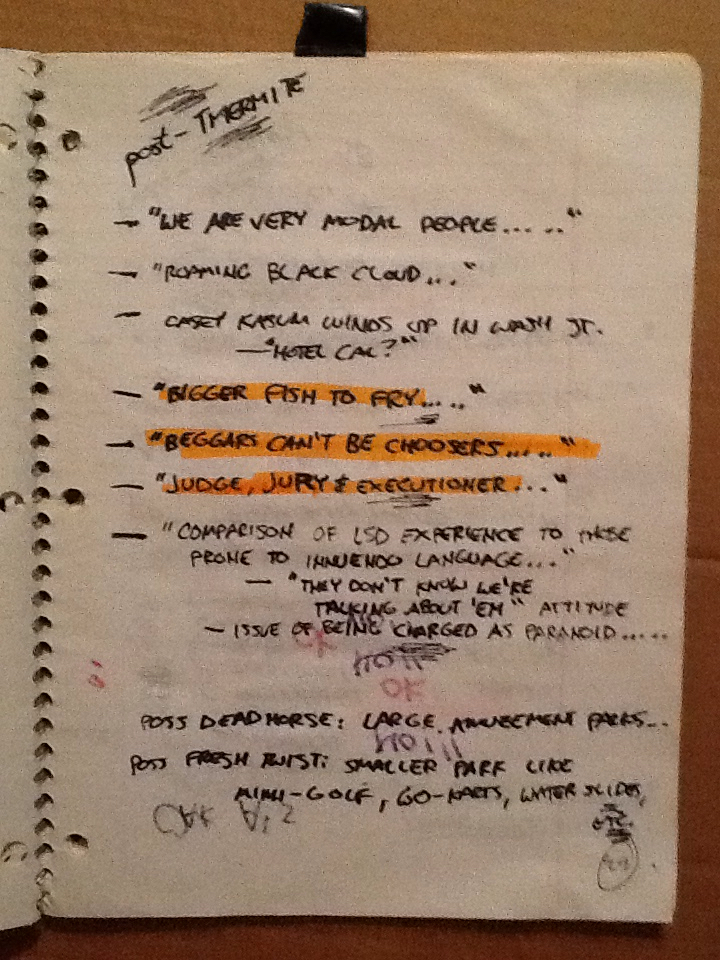 post-THERMITE
— "WE ARE VERY MODAL PEOPLE... .."
— "ROAMING BLACK CLOUD..."
— CASEY KASUM WINDS UP IN WASH JT.
— "HOTEL CAL?"
— "BIGGER FISH TO FRY... .."
— "BEGGARS CAN'T BE CHOOSERS... .."
— "JUDGE, JURY & EXECUTIONER..."
— "COMPARISON OF LSD EXPERIENCE TO THOSE
PRONE TO INNUENDO LANGUAGE..."
— "THEY DON'T KNOW WE'RE
TALKING ABOUT 'EM" ATTITUDE
— ISSUE OF BEING CHARGED AS PARANOID.....
OK
POSS DEADHORSE: LARGE AMUSEMENT PARKS...
POSS FRESH TWIST: SMALLER PARK LIKE
MINI-GOLF, GO-KARTS, WATER SLIDES,
ETC.